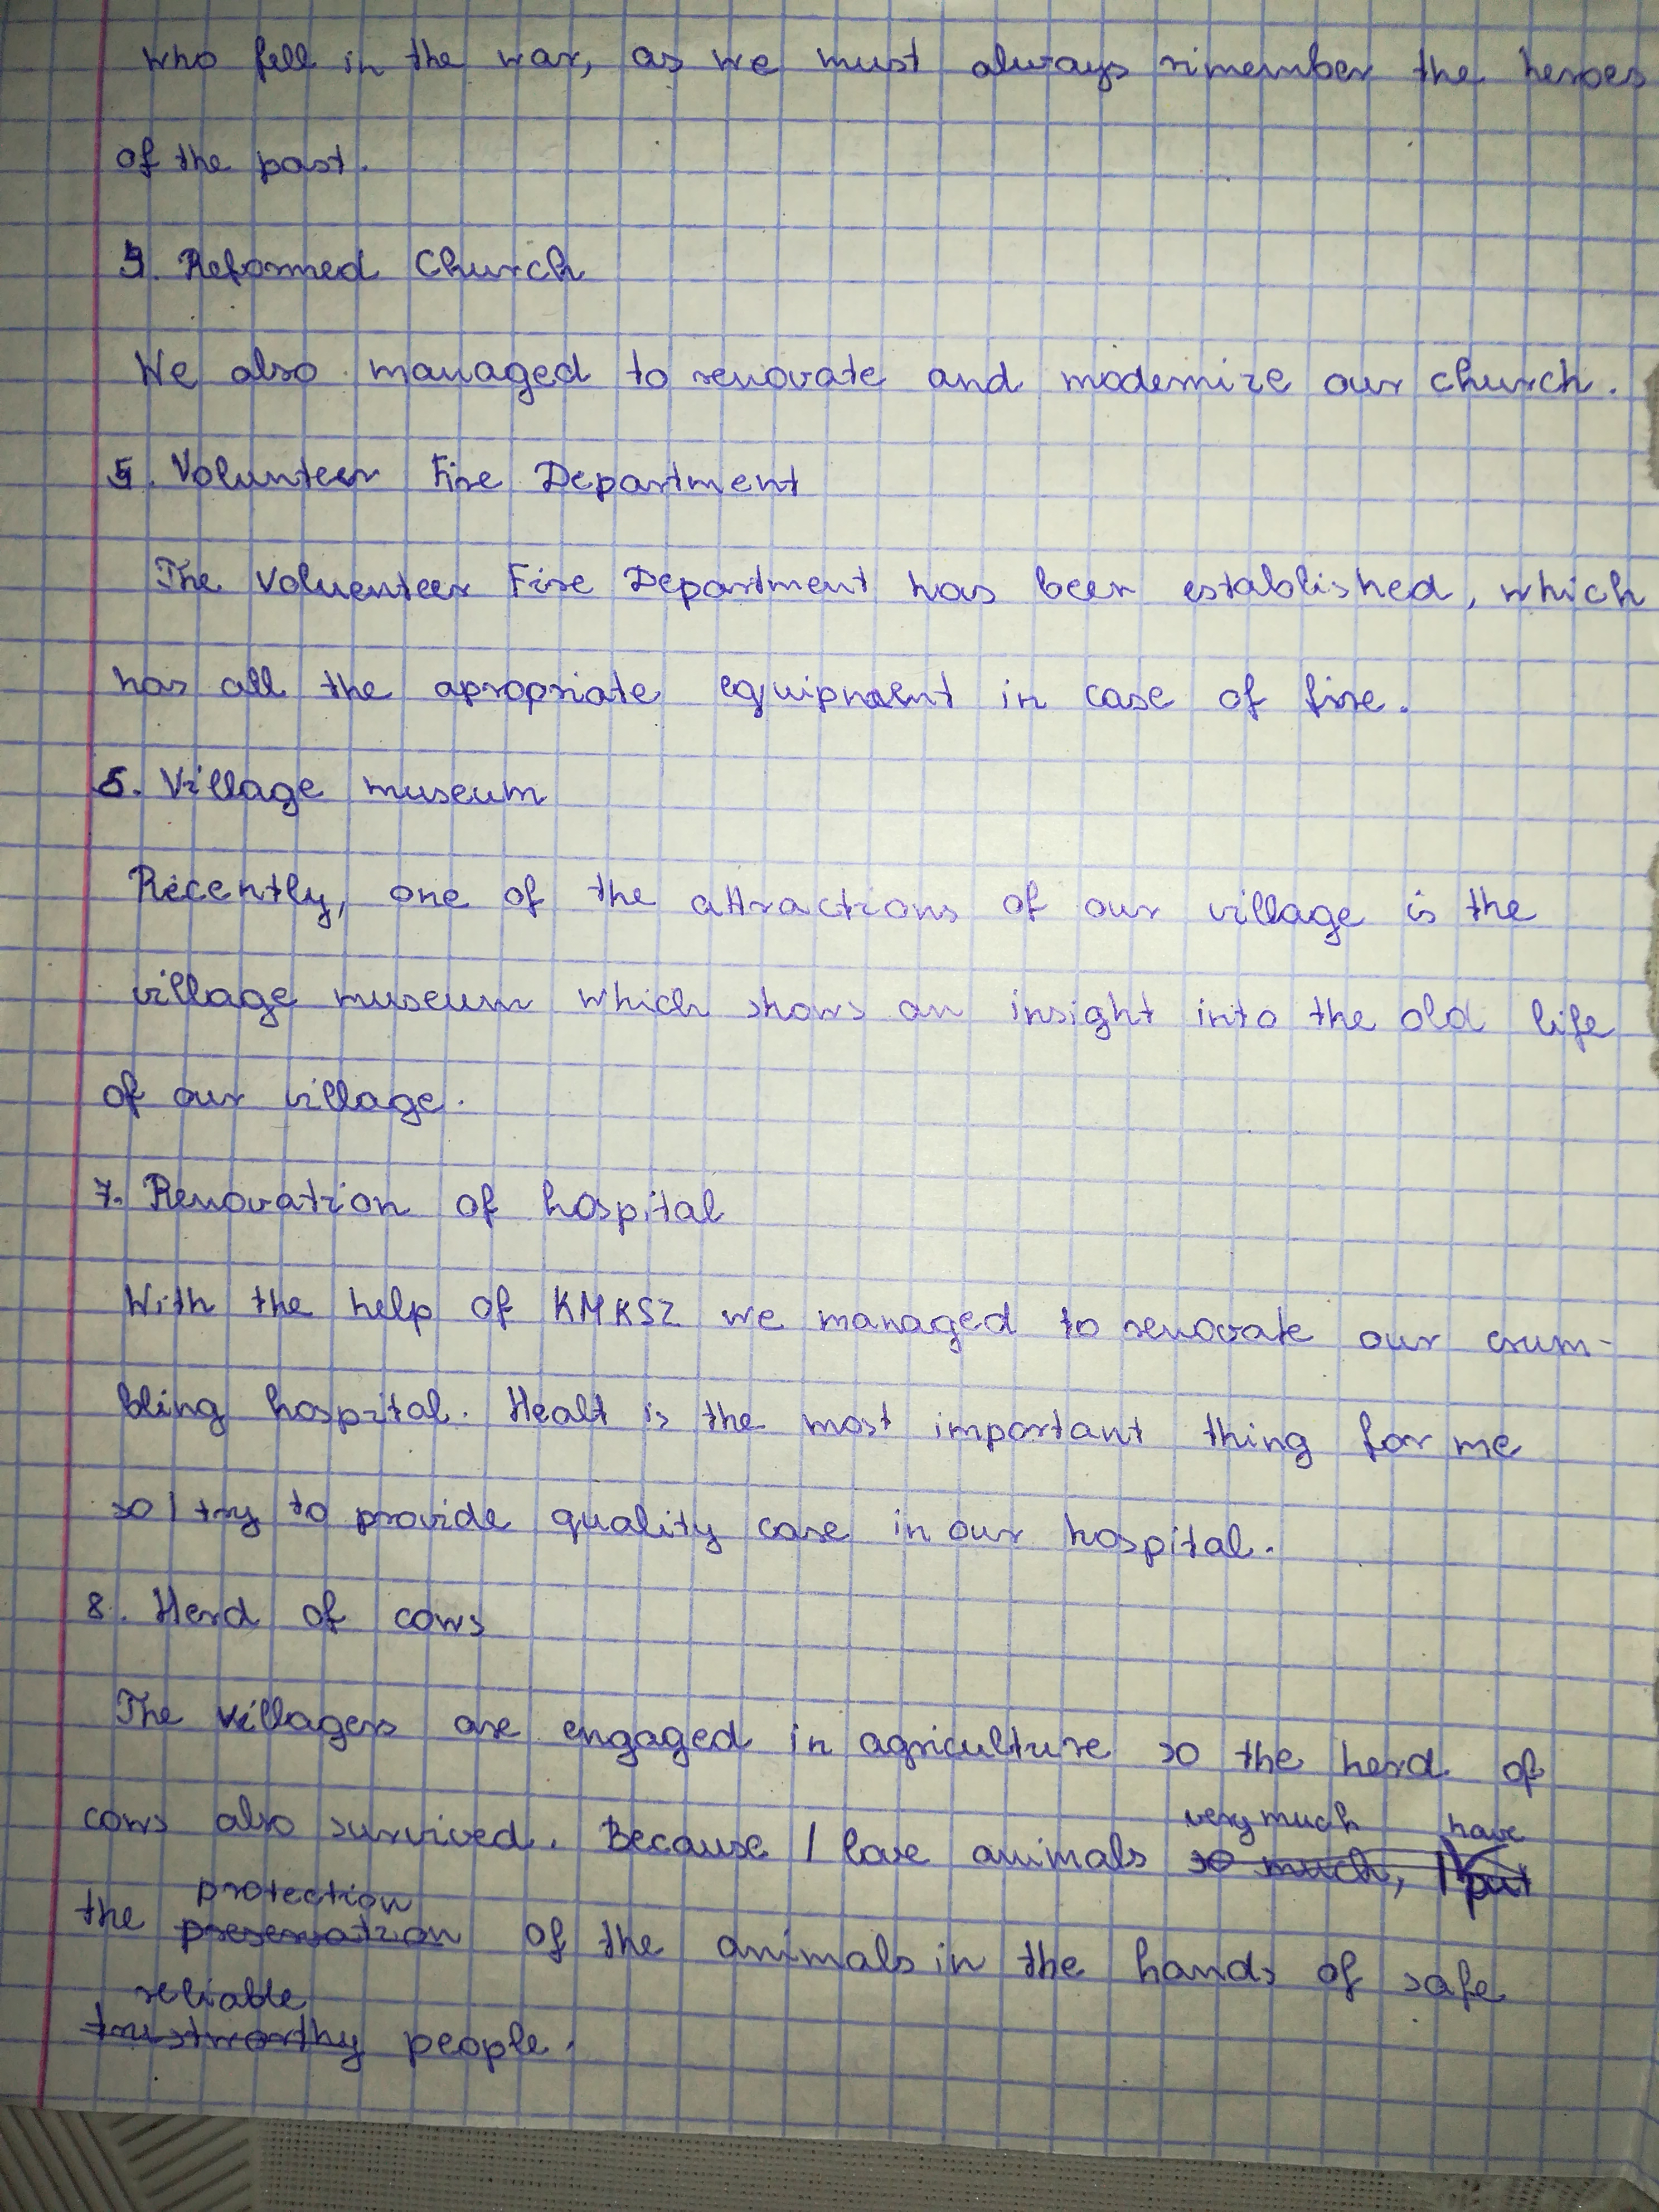 who fell in the war, as we must always rimember the heroes
of the past.
4. Reformed Church
We also managed to renovate and modernize our church.
5. Volunteer Fire Department
The Voluenteer Fire Department has been established, which
has all the apropriate equipment in case of fire.
6. Village museum
Recently, one of the attractions of our village is the
village museum which shows an insight into the old life
of our village.
7. Renovation of hospital
With the help of KMKSZ we managed to renovate our crum-
bling hospital. Healt is the most important thing for me
so I try to provide quality care in our hospital.
8. Herd of cows
The villagers are engaged in agriculture so the herd of
very much have
cows also survived. Because I love animals so much, I put
protection
the preservation of the animals in the hands of safe
reliable
trustworthy people.